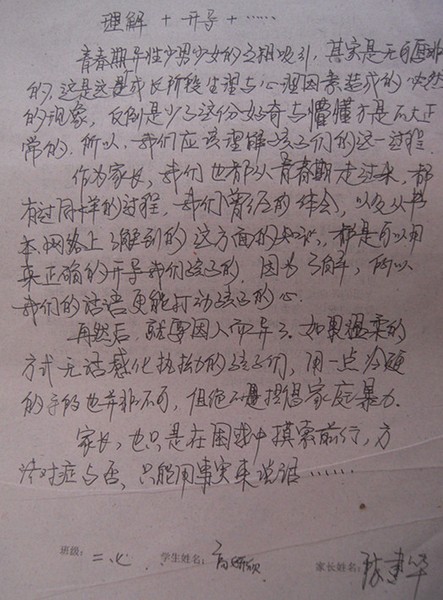 理解 + 开导 + ……
青春期异性少男少女的互相吸引,其实是无可厚非
的,这是这是成长阶段生理与心理因素造成的必然
的现象,反倒是少了这份好奇与懵懂才是不大正
常的.所以,我们应该理解孩子们的这一过程.
作为家长,我们也都从青春期走过来,都
有过同样的过程,我们曾经的体会,以及从书
本.网络上了解到的这方面的知识,都是可以用
来正确的开导我们孩子的,因为了解,所以
我们的话语更能打动孩子的心.
再然后,就要因人而异了.如果温柔的
方式无法感化执拗的孩子们,用一点冷硬
的手段也并非不可,但绝不提倡家庭暴力.
家长,也只是在困惑中摸索前行,方
法对症与否,只能用事实来说话……
班级: 二、 学生姓名: 家长姓名: 陈建华